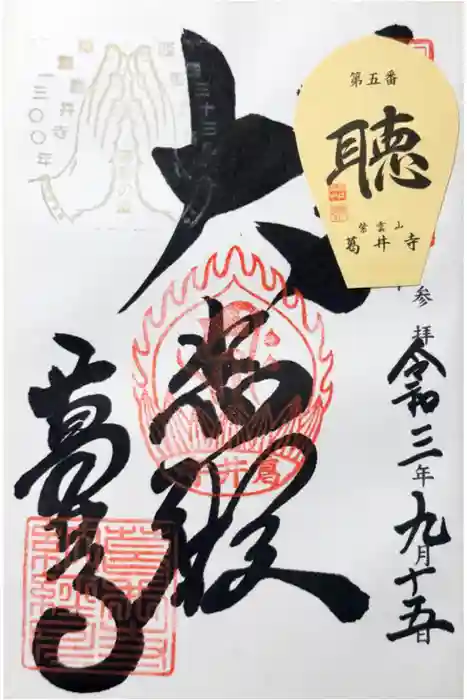 参拝
令和三年九月十五日
第五番
聴
紫雲山
葛井寺
大悲殿
葛井寺
葛井寺
一三〇〇年